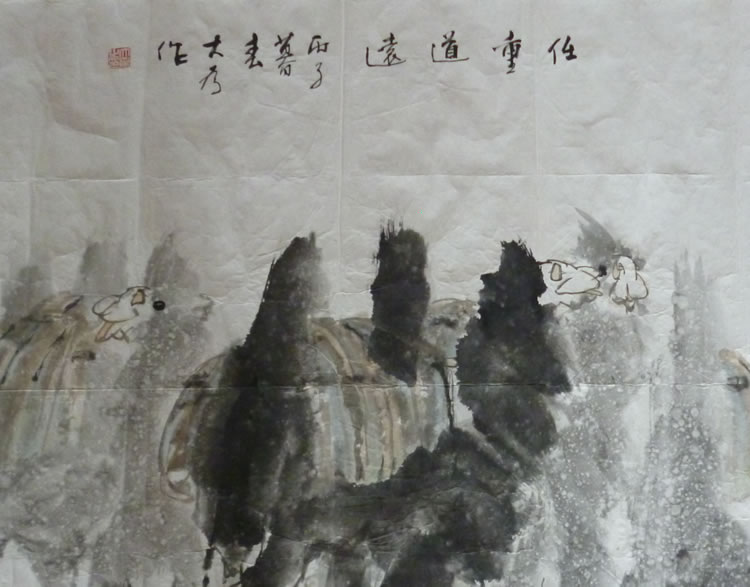 任重道遠 丙子暮春 大为作